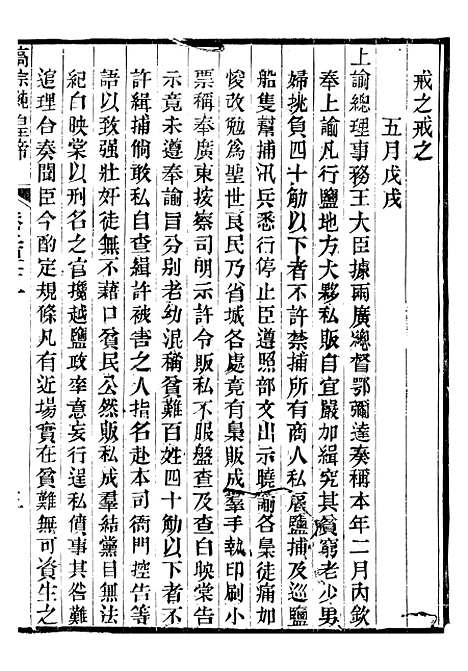 戒之戒之
五月戊戌
上諭總理事務王大臣據兩廣總督鄂彌達奏稱本年二月內欽
奉上諭凡行鹽地方大夥私販自宜嚴加緝究其貧窮老少男
婦挑負四十觔以下者不許禁捕所有商人私雇鹽捕及巡鹽
船隻幫捕汛兵悉行停止臣遵照部文出示曉諭各梟徒痛加
悛改勉為聖世良民乃省城各處竟有梟販成羣手執印刷小
票稱奉廣東按察司明示許令販私不服盤查及查白映棠告
示竟未遵奉諭旨分別老幼混稱貧難百姓四十觔以下者不
許緝捕倘敢私自查緝許被害之人指名赴本司衙門控告等
語以致强壯奸徒無不藉口貧民公然販私成羣結黨目無法
紀白映棠以刑名之官攙越鹽政率意妄行逞私僨事其咎難
逭理合奏聞臣今酌定規條凡有近場實在貧難無可資生之
高宗純皇帝
三